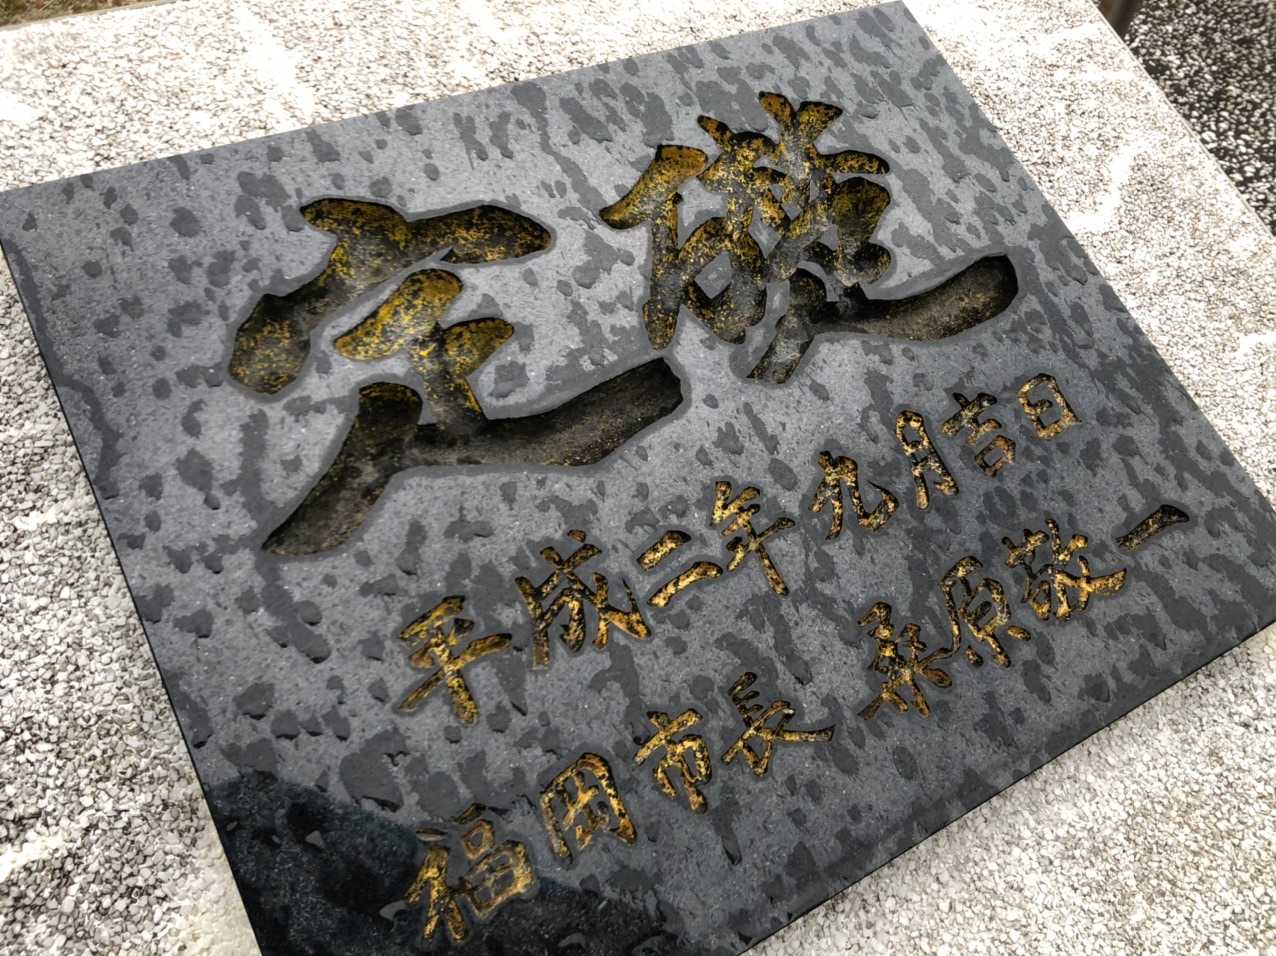 定礎
平成二年九月吉日
福岡市長 桑原敬一